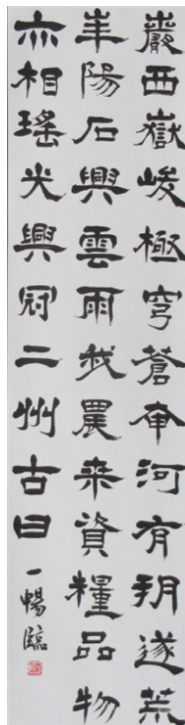 巖西嶽峻極穹蒼奄河有朔遂荒
華陽石興雲雨我農来資糧品物
亦相瑤光興冠二州古曰
一暢臨